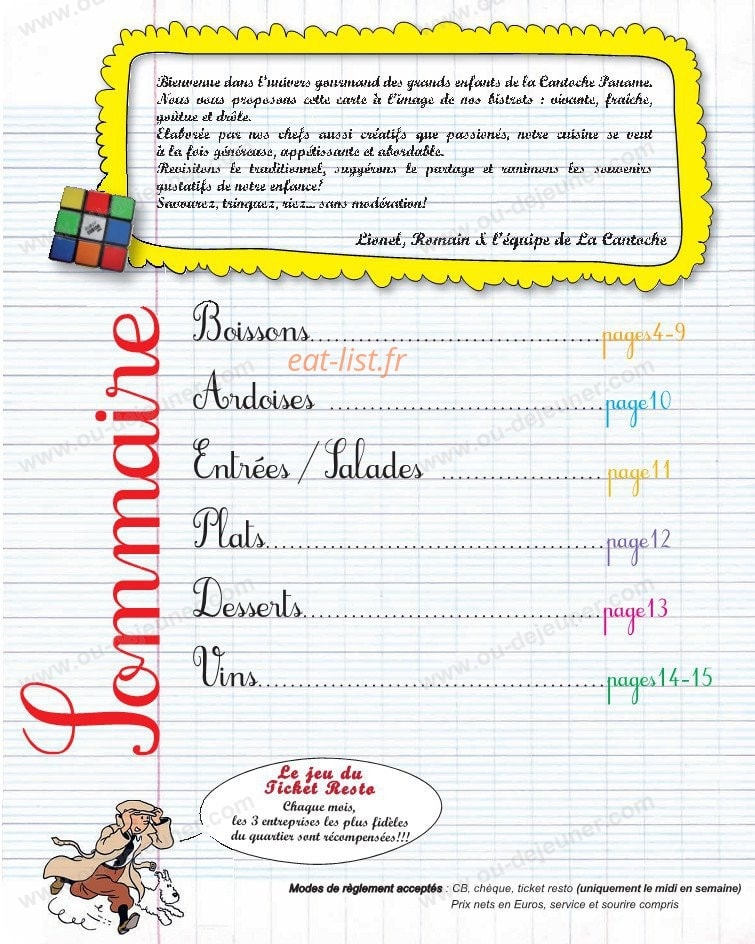 Bienvenue dans l'univers gourmand des grands enfants de la Cantoche Paname.
Nous vous proposons cette carte à l'image de nos bistrots : vivante, fraîche,
goûtue et drôle.
Elaborée par nos chefs aussi créatifs que passionés, notre cuisine se veut
à la fois généreuse, appétissante et abordable.
Revisitons le traditionnel, suggérons le partage et ranimons les souvenirs
gustatifs de notre enfance!
Savourez, trinquez, riez... sans modération!
Lionel, Romain & l'équipe de La Cantoche
Sommaire
Boissons..............................pages4-9
eat-list.fr
Ardoises ..............................page10
Entrées / Salades ..................page11
Plats.....................................page12
Desserts................................page13
Vins.....................................pages14-15
Le jeu du
Ticket Resto
Chaque mois,
les 3 entreprises les plus fidèles
du quartier sont récompensées!!!
Modes de règlement acceptés : CB, chèque, ticket resto (uniquement le midi en semaine)
Prix nets en Euros, service et sourire compris
www.ou-dejeuner.com